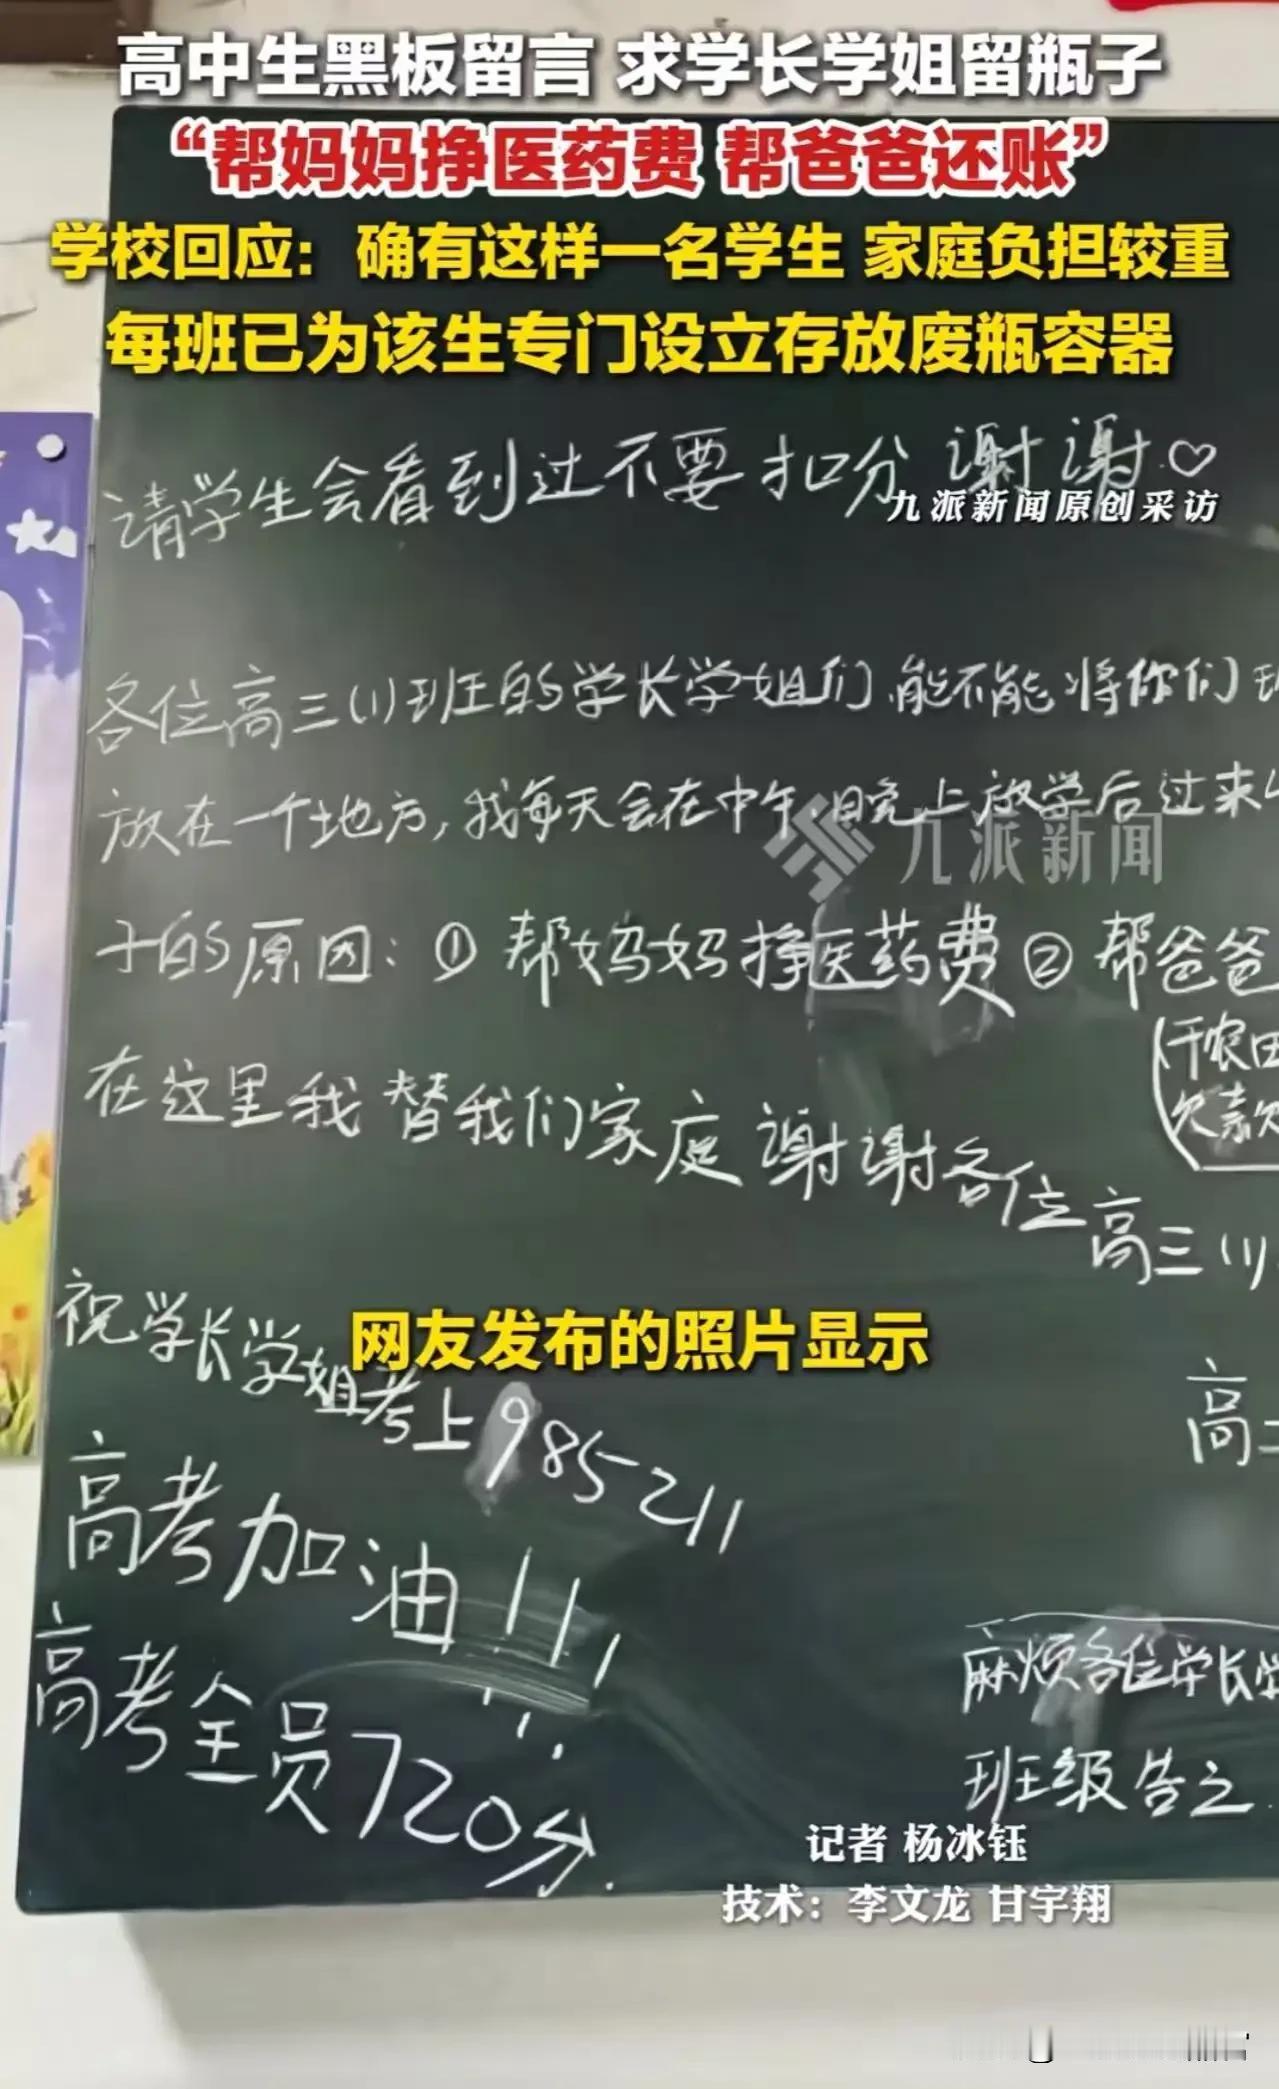 高中生黑板留言 求学长学姐留瓶子
“帮妈妈挣医药费 帮爸爸还账”
学校回应：确有这样一名学生 家庭负担较重
每班已为该生专门设立存放废瓶容器
请学生会看到过不要扣分 谢谢♡
九派新闻原创采访
各位高三(1)班的学长学姐们,能不能将你们
放在一个地方,我每天会在中午,晚上放学后过来
九派新闻
子的原因:① 帮妈妈挣医药费② 帮爸爸
(干农田
欠款
在这里我替我们家庭谢谢各位高三(1)
祝学长学姐考上985 211
网友发布的照片显示
高
高考加油!!!
高考全员720分.
麻烦各位学长
班级告之.
记者 杨冰钰
技术：李文龙 甘宇翔